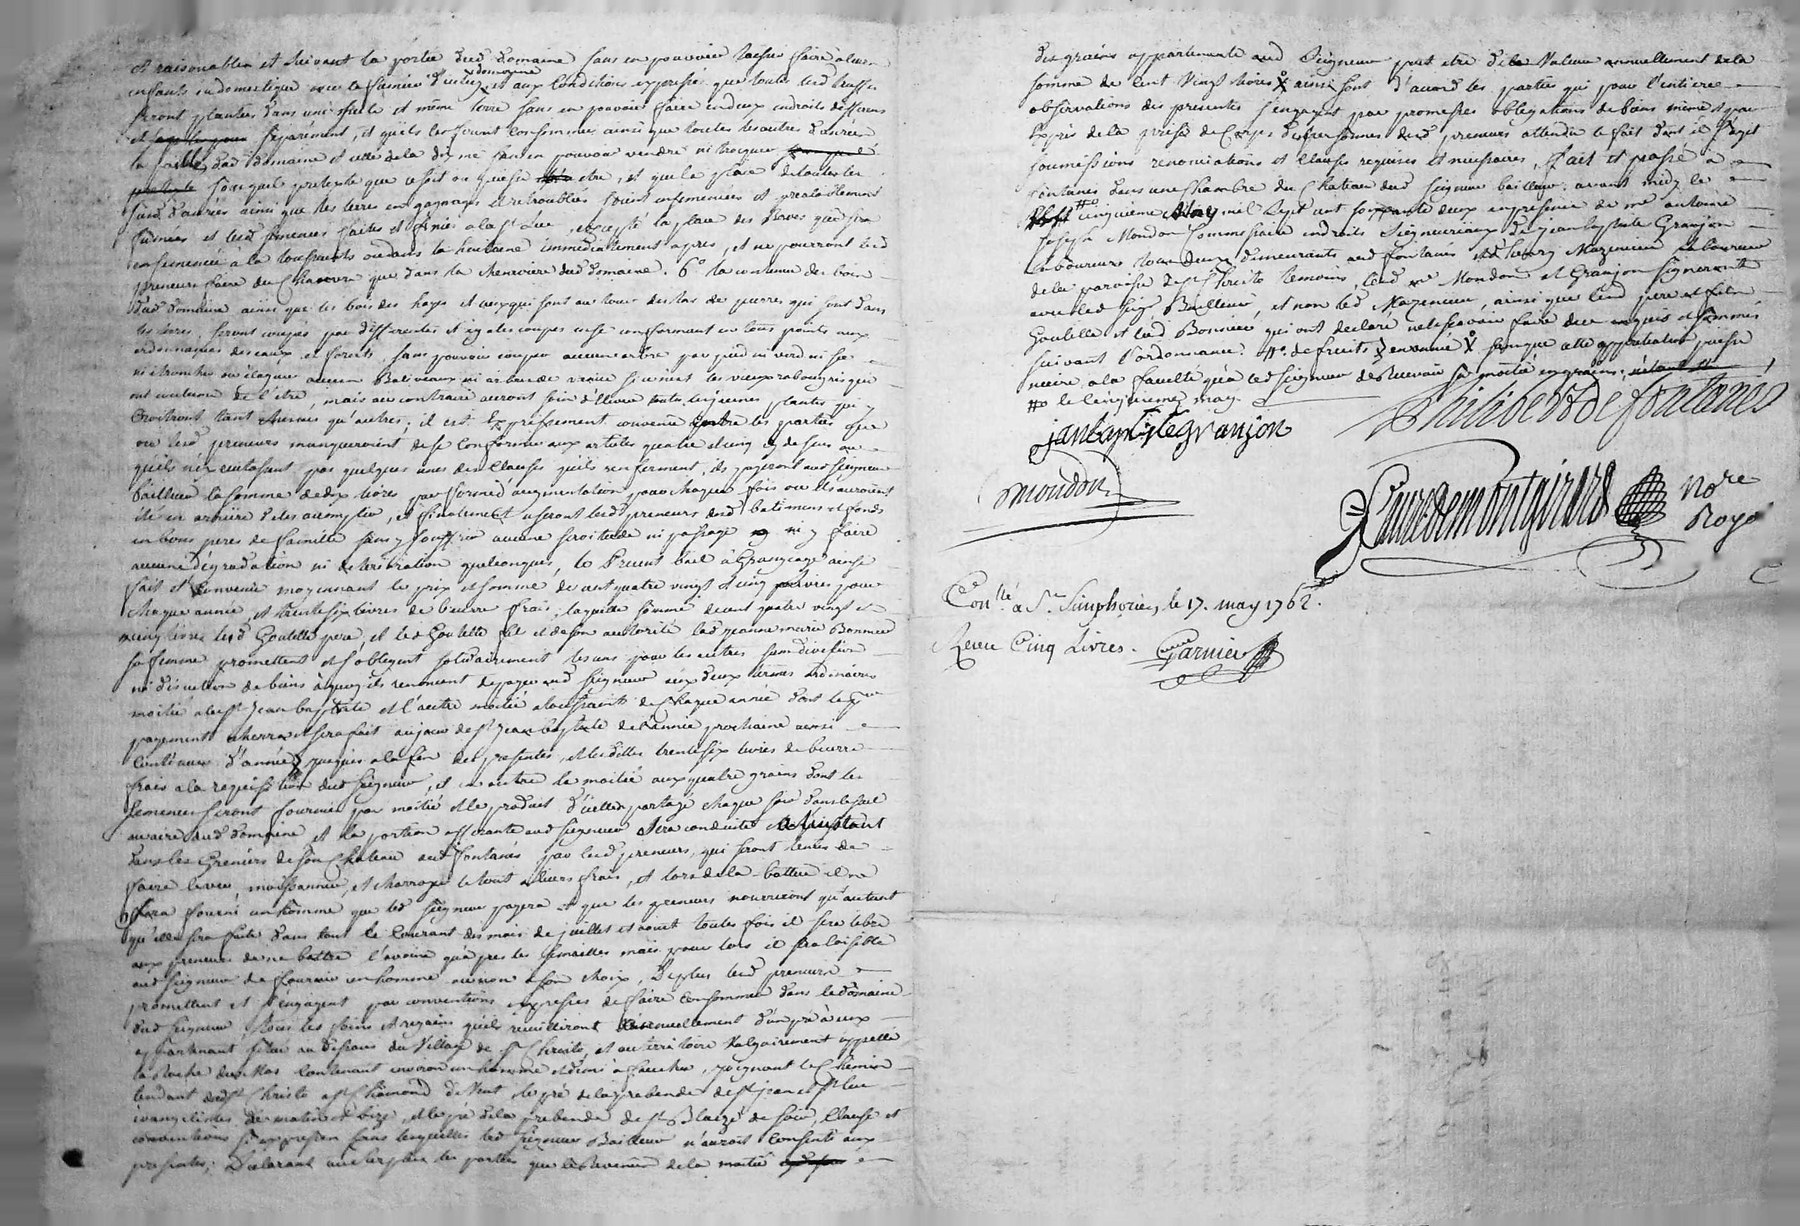 et raisonables et suivant la portée dud domaine sans en pouvoir laisser faire à leurs
enfants ou domestique avec le fumier d'icelui domaine et aux conditions expresses que toutes lesd truffes
seront plantées dans une seule et même terre sans en pouvoir faire en deux endroits différens
et séparément, et qu'ils les feront consommer ainsi que toutes les autres danrées
la paille dud domaine et celle de la dixme sans en pouvoir vendre ni troquer
sous quel pretexte que ce soit ou puisse être, et que la place de toutes les
susd danrées ainsi que les terres en gagnages et retroublés soient ensemencées et préalablement
fumées et lesd semences faites et finies à la st Luc, excepté la place des raves qui sera
ensemencée à la toussaints ou dans la huitaine immediatement après, et ne pourront lesd
preneurs faire du chanvre que dans la cheneviere dud domaine. 6° la contenue des bois
dud domaine ainsi que les bois des hayes et ceux qui sont autour des tas de pierres qui sont dans
les terres, seront coupés par differentes et egales coupes en se conformant en tous points aux
ordonnances des eaux et forets, sans pouvoir couper aucun arbre par pied ni verd ni sec
ni étroncher ou élaguer aucun Baliveaux ni arbre de venue si ce n'est les vieux rabougris qui
ont coutume de l'être, mais au contraire auront soin d'élever toutes les jeunes plantes qui y
croitront tant chesnes qu'autres; il est expressement convenu entre les parties que
ou lesd preneurs manqueroient de se conformer aux articles quatre et cinq cy dessus ou
qu'ils n'executassent pas quelques unes des clauses qu'ils renferment, ils payeront aud seigneur
bailleur la somme de dix livres par forme d'augmentation pour chaque fois ou ils auroient
été en arriere de les accomplir, et finalement useront lesd preneurs desd batimens et fonds
en bons peres de famille sans y souffrir aucune servitude ni passage ni y faire
aucune dégradation ni deterioration quelconques, le présent bail à Grangeage ainsi
fait et convenu moyennant le prix et somme de cent quatre vingt et cinq livres pour
chaque année, et trente six livres de beurre frais; laquelle somme de cent quatre vingt et
cinq livres lesd Goutelle pere, et led Goutelle fils et de son autorité lad jeanne marie Bonnier
sa femme promettent et s'obligent solidairement les uns pour les autres sans division
ni discution de biens à quoy ils renoncent de payer aud Seigneur aux deux termes ordinaires
moitié à la st Jean baptiste et l'autre moitié à la toussaints de chaque année dont le 1er
payement echerra et sera fait au jour de st jean baptiste de l'année prochaine ainsi
continuer d'année jusques à la fin des presentes, et lesdittes trente six livres de beurre
frais à la requisition dud Seigneur, et en outre la moitié aux quatre grains dont les
semences seront fournies par moitié et le produit d'icelles partagé chaque fois dans le sol
ou aire dud domaine et la portion afferante aud seigneur sera conduite à l'instant
dans les Greniers de son Chateau aud fontanès par lesd preneurs, qui seront tenus de
faire lever, moissonner, et charroyer le tout à leurs frais, et lors de la battue il ne
sera fourni un homme que led Seigneur payera et que les preneurs nourriront qu'autant
qu'elle sera faite dans tout le courant des mois de juillet et aout toutes fois il sera libre
aux preneurs de ne battre l'avoine qu'après les semailles mais pour lors il sera loisible
aud Seigneur de fournir un homme ou non à son choix. De plus lesd preneurs
promettent et s'engagent par conventions expresses de faire consommer dans le domaine
dud Seigneur tous les foins et regains qu'ils recueilliront annuellement d'un pré à eux
appartenant situé au dessous du Village de st Christo, et au territoire vulgairement appellé
la roche du Mas contenant environ un homme et demi à faucher, joignant le chemin
tendant dud st Christo à st Chamond de vent, le pré de la prebende de st jean et st luc
évangelistes de matin et bize, et le pré de la prebende de st Blaize de soir, Clause et
conventions si expresses sans lesquelles led Seigneur Bailleur n'auroit consenti aux
presentes; Déclarant les parties que le revenu de la moitié
des grains appartenante aud Seigneur peut etre de la Valeur annuellement de la
somme de cent vingt livres ainsi sont d'accord les parties qui pour l'entiere
observations des presentes s'engagent par promesses obligations de biens même et par
Exprès de la prise de Corps des personnes desd preneurs attendu le fait dont il s'agit
soumissions renonciations et clauses requises et necessaires. Fait et passé à
fontanès dans une chambre du Chateau dud seigneur bailleur; avant midy le
cinquieme May mil Sept cent soixante deux en presence de me antoine
Joseph Mondon Commissaire en droits Seigneuriaux et de jean baptiste Granjon
Laboureur tous deux demeurants aud fontanès et d'henry Mazenieux laboureur
de la paroisse de st Christo temoins, led me Mondon et Granjon signeront
avec led sgr Bailleur, et non led Mazenieux, ainsi que lesd pere et fils
Goutelle et lad Bonnier qui ont declaré ne le sçavoir faire de ce enquis et sommés
suivant l'ordonnance. de fruits sans que cette approbation puisse
nuire à la faculté qu'a led Seigneur de recevoir sa moitié en grains,
le cinquieme may.
janbaptiste granjon
Philibert de fontanès
Mondon
Faure de montgirard Nore
Royal
Conllé à St Simphorien le 17. may 1762.
Reçu Cinq Livres. Garnier